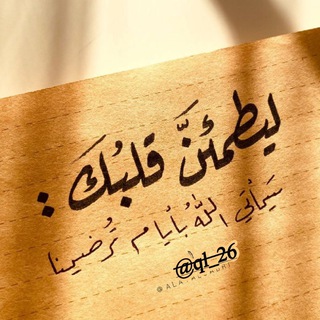 ليطمئنَّ قلبُكَ :
سَيأتي اللّٰهُ بأيام تُرضينا
@ql_26